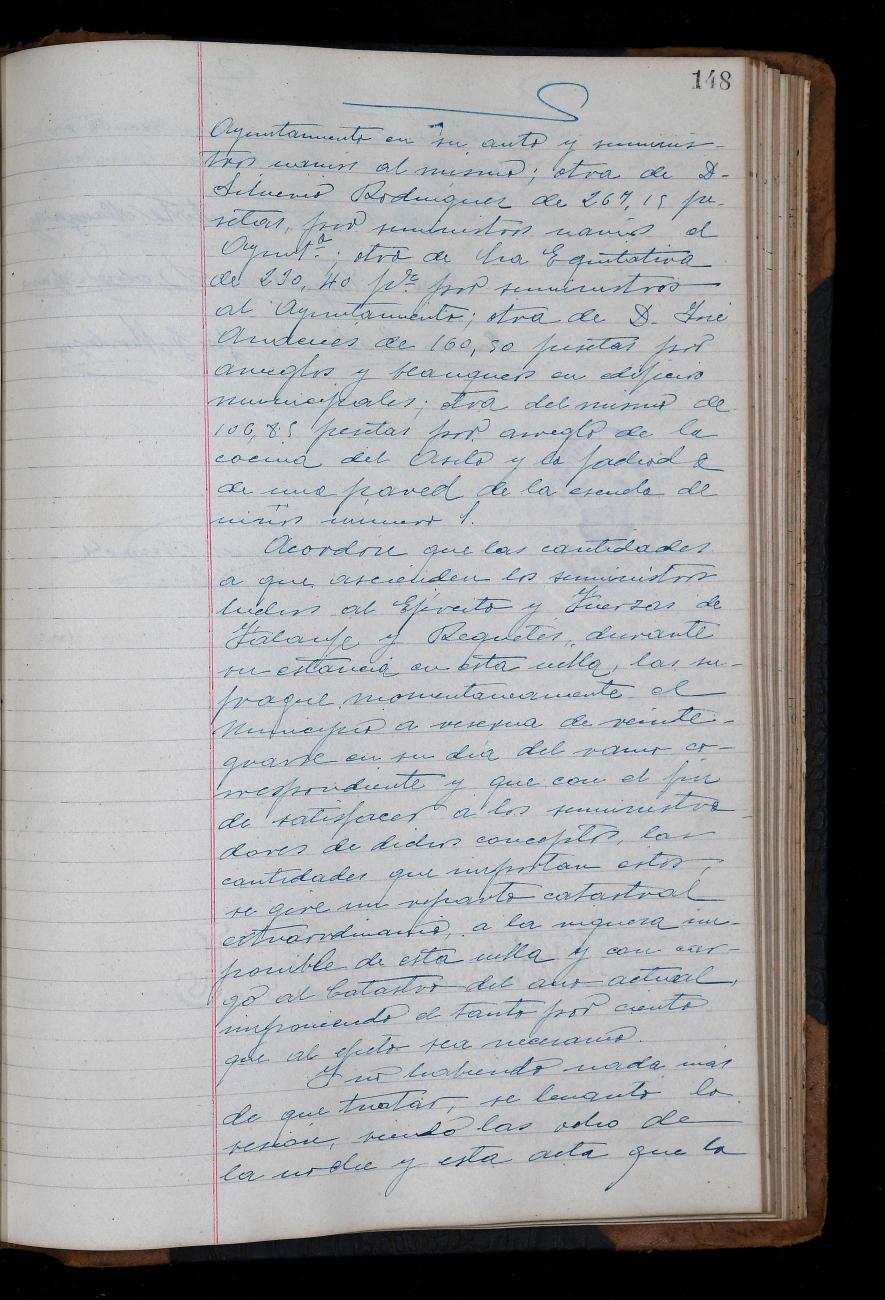 148
Ayuntamiento en su auto y suminis-
tros varios al mismo; otra de D.
Silverio Rodriguez de 267,15 pe-
setas, por suministros varios al
Ayuntº; otra de La Equitativa
de 230,40 pts por suministros
al Ayuntamiento; otra de D. José
de 160,50 pesetas por
arreglos y blanqueos en edificios
municipales; otra del mismo de
106,85 pesetas por arreglo de la
cocina del Asilo y la
de una pared de la escuela de
niños número 1.
Acordóse que las cantidades
a que ascienden los suministros
hechos al Ejército y Fuerzas de
Falange y Requetés, durante
su estancia en esta villa, las su-
frague momentaneamente el
Municipio a reserva de reinte-
grarse en su día del ramo co-
rrespondiente y que con el fin
de satisfacer a los suministra
dores de dichos conceptos, las
cantidades que importan estos,
se gire un reparto catastral
extraordinario, a la riqueza im-
ponible de esta villa y con car-
go al Catastro del año actual,
imponiendo el tanto por ciento
que al efecto sea necesario.
Y no habiendo nada más
de que tratar, se levantó la
sesión, siendo las ocho de
la noche y esta acta que la